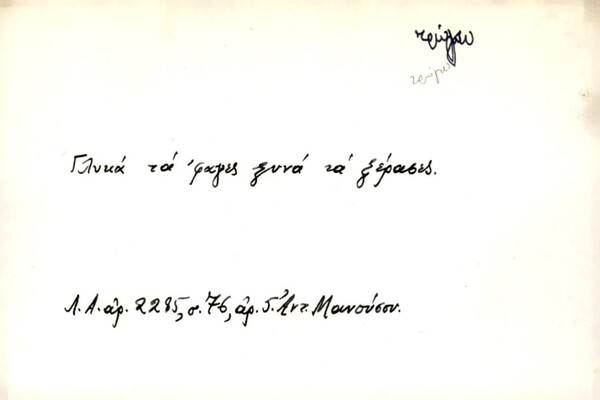 τρώγω
τρώγω
Γλυκά τά 'φαγες ξυνά τά ξέρασες.
Λ.Α. ἀρ. 2285, σ. 76, ἀρ. 5. Ἀντ. Μανούσου.